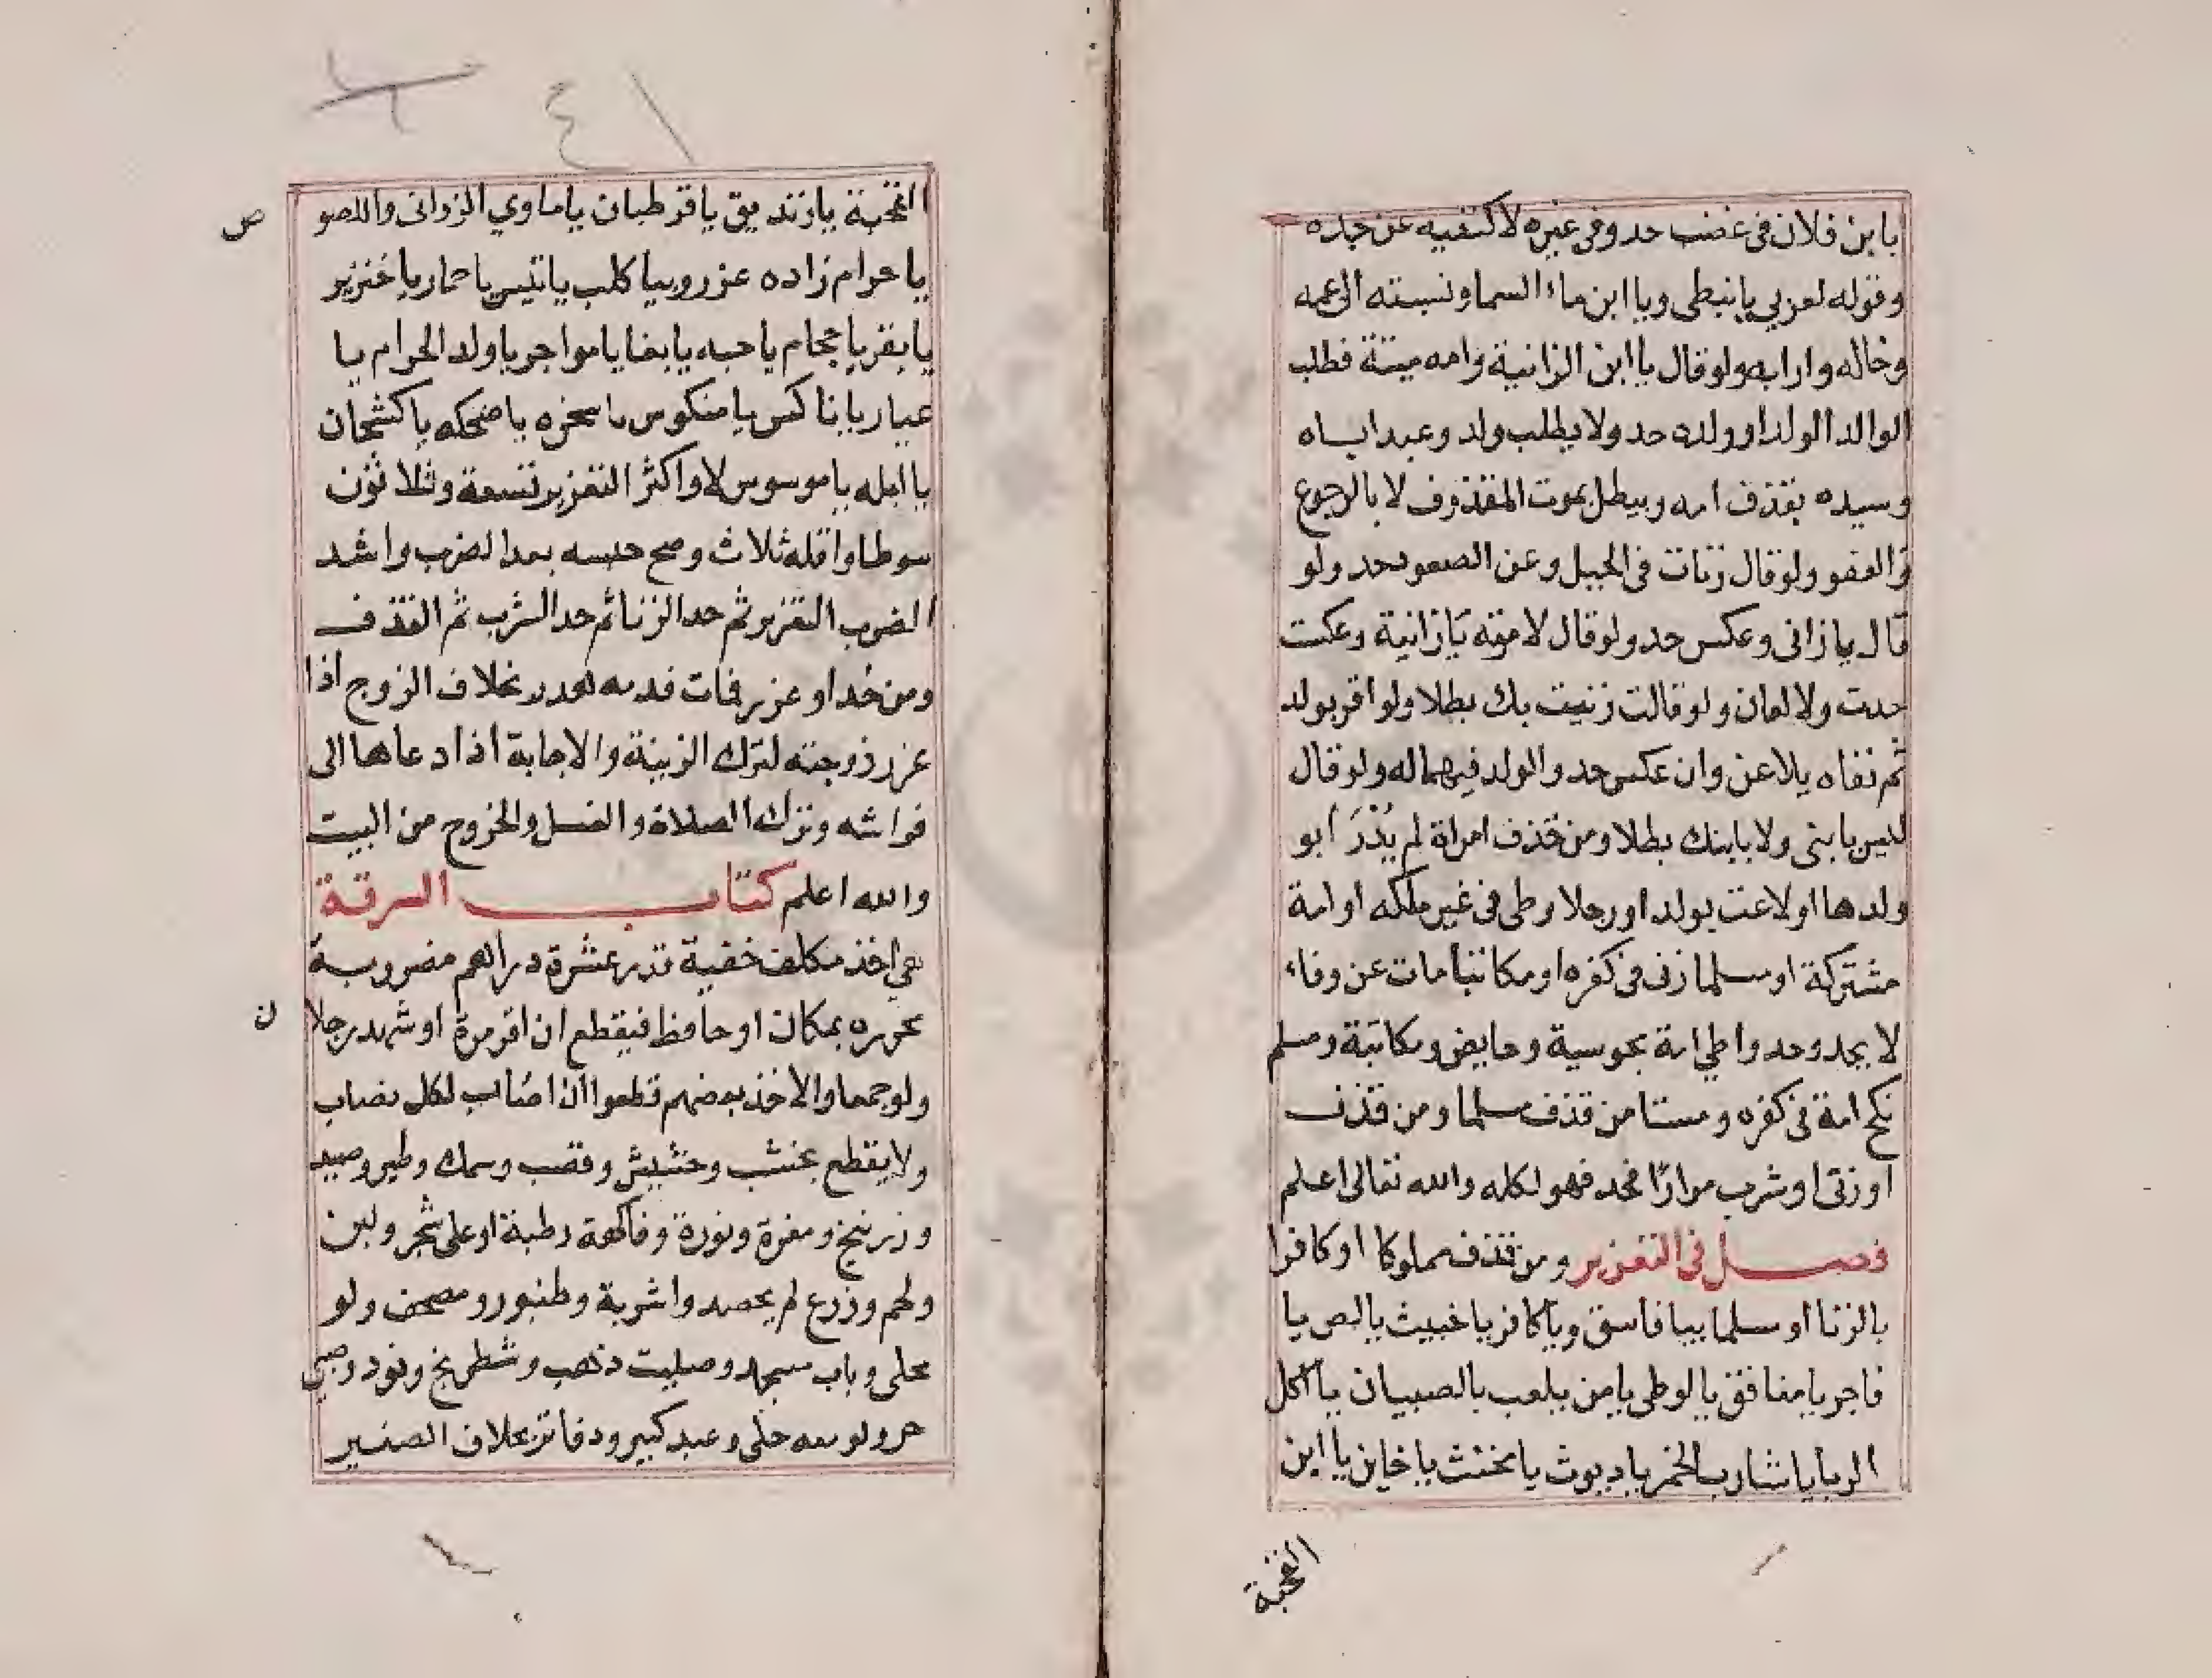 يا بن فلان في غضب حد وفي غيره لا كنفيه عن جده
وقوله لعربي يا نبطي ويا ابن ماء السما ونسبته الى عمه
وخاله ورابه ولو قال يا ابن الزانية وامه ميتة فطلب
الوالد الولد او ولده حد ولا يطلب ولد وعبد اباه
وسيده بقذف امه ويبطل بموت المقذوف لا بالرجوع
والعفو ولو قال زنات في الجبل وعن الصعود حد ولو
قال يا زاني وعكس حد ولو قال لامرته يا زانية وعكست
حدت ولا لعان ولو قالت زنيت بك بطلا ولو اقر بولد
ثم نفاه يلاعن وان عكس حد والولد فيهما له ولو قال
ليس يا بني ولا بابنك بطلا ومن قذف امراة لم يدر ابو
ولدها او لاعنت بولد او رجلا وطى في غير ملكه او امة
مشتركة او مسلما زنى في كفره او مكاتبا مات عن وفاء
لا يحد وحد واطي امة مجوسية وحايض ومكاتبة ومسلم
نكح امة في كفره ومستامن قذف مسلما ومن قذف
او زنى او شرب مرارًا فحد فهو لكله والله تعالى اعلم
فصل في التعزير ومن قذف مملوكا او كافرا
بالزنا او مسلما بيا فاسق ويا كافر يا خبيث يا لص يا
فاجر يا منافق يا لوطي يا من يلعب بالصبيان يا اكل
الربا يا شارب الخمر يا ديوث يا مخنث يا خاين يا ابن
القحبة
٤١
القحبة يا زنديق يا قرطبان يا ماوي الزواني واللصو
ص
يا حرام زاده عزر وبيا كلب يا تيس يا حمار يا خنزير
يا بقر يا حجام يا حيه يا بغا يا مواجر يا ولد الحرام يا
عيار يا ناكس يا منكوس يا سخره يا ضحكه يا كشحان
يا ابله يا موسوس لا واكثر التعزير تسعة وثلاثون
سوطا واقله ثلاث وصح حبسه بعد الضرب واشد
الضرب التعزير ثم حد الزنا ثم حد الشرب ثم القذف
ومن حُد او عزر فمات فدمه هدر بخلاف الزوج اذا
عزر زوجته لترك الزينة والاجابة اذا دعاها الى
فراشه وترك الصلاة والغسل والخروج من البيت
والله اعلم كتاب السرقة
هي اخذ مكلف خفية قدر عشرة دراهم مضروبة
محرزه بمكان او حافظ فيقطع ان اقر مرة او شهد رجلا
ن
ولو جمعا والاخذ بعضهم قطعوا ان اصاب لكل نصاب
ولا يقطع بخشب وحشيش وقصب وسمك وطير وصيد
وزرنيخ ومغرة ونورة وفاكهة رطبة او على شجر ولبن
ولحم وزرع لم يحصد واشربة وطنبور ومصحف ولو
محلى وباب مسجد وصليب ذهب وشطرنج ونرد وصبي
حر ولو معه حلى وعبد كبير ودفاتر بخلاف الصغير